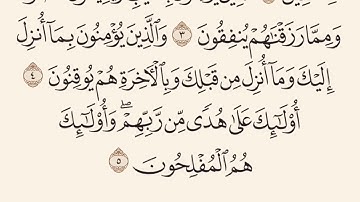 وَمِمَّا رَزَقْنَٰهُمْ يُنفِقُونَ ٣ وَٱلَّذِينَ يُؤْمِنُونَ بِمَآ أُنزِلَ
إِلَيْكَ وَمَآ أُنزِلَ مِن قَبْلِكَ وَبِٱلْأَخِرَةِ هُمْ يُوقِنُونَ ٤
أُو۟لَٰٓئِكَ عَلَىٰ هُدًى مِّن رَّبِّهِمْ ۖ وَأُو۟لَٰٓئِكَ
هُمُ ٱلْمُفْلِحُونَ ٥